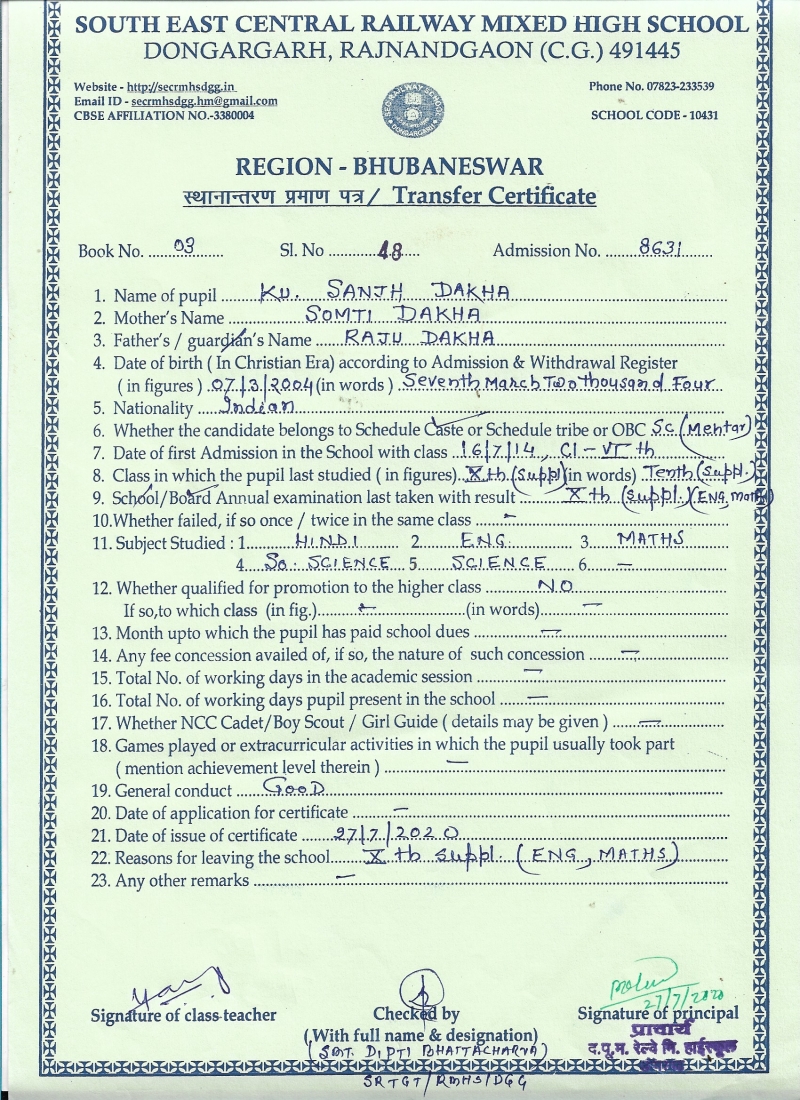 SOUTH EAST CENTRAL RAILWAY MIXED HIGH SCHOOL
DONGARGARH, RAJNANDGAON (C.G.) 491445
Website - http://secrmhsdgg.in
Phone No. 07823-233539
Email ID - secrmhsdgg.hm@gmail.com
CBSE AFFILIATION NO.-3380004
SCHOOL CODE - 10431
REGION - BHUBANESWAR
स्थानान्तरण प्रमाण पत्र / Transfer Certificate
Book No. 03 Sl. No 48 Admission No. 8631
1. Name of pupil KU. SANJH DAKHA
2. Mother's Name SOMTI DAKHA
3. Father's / guardian's Name RAJU DAKHA
4. Date of birth ( In Christian Era) according to Admission & Withdrawal Register
( in figures ) 07/3/2004 (in words ) Seventh March Two thousand Four
5. Nationality Indian
6. Whether the candidate belongs to Schedule Caste or Schedule tribe or OBC SC (Mehtar)
7. Date of first Admission in the School with class 16/7/14, Cl - VI th
8. Class in which the pupil last studied ( in figures) Xth (Suppl) (in words) Tenth (Suppl.
9. School/Board Annual examination last taken with result Xth (suppl.) (ENG, maths)
10. Whether failed, if so once / twice in the same class -
11. Subject Studied : 1 HINDI 2 ENG. 3 MATHS
4. So. SCIENCE 5 SCIENCE 6 -
12. Whether qualified for promotion to the higher class NO
If so,to which class (in fig.) - (in words) -
13. Month upto which the pupil has paid school dues -
14. Any fee concession availed of, if so, the nature of such concession -
15. Total No. of working days in the academic session -
16. Total No. of working days pupil present in the school -
17. Whether NCC Cadet/Boy Scout / Girl Guide ( details may be given ) -
18. Games played or extracurricular activities in which the pupil usually took part
( mention achievement level therein ) -
19. General conduct GOOD
20. Date of application for certificate -
21. Date of issue of certificate 27/7/2020
22. Reasons for leaving the school Xth suppl. (ENG, MATHS)
23. Any other remarks -
27/7/2020
Signature of class teacher Checked by Signature of principal
(With full name & designation) प्राचार्य
(SMT. DIPTI BHATTACHARYA) द.पू.म. रेल्वे मि. हाईस्कूल
SRTGT/RMHS/DGG